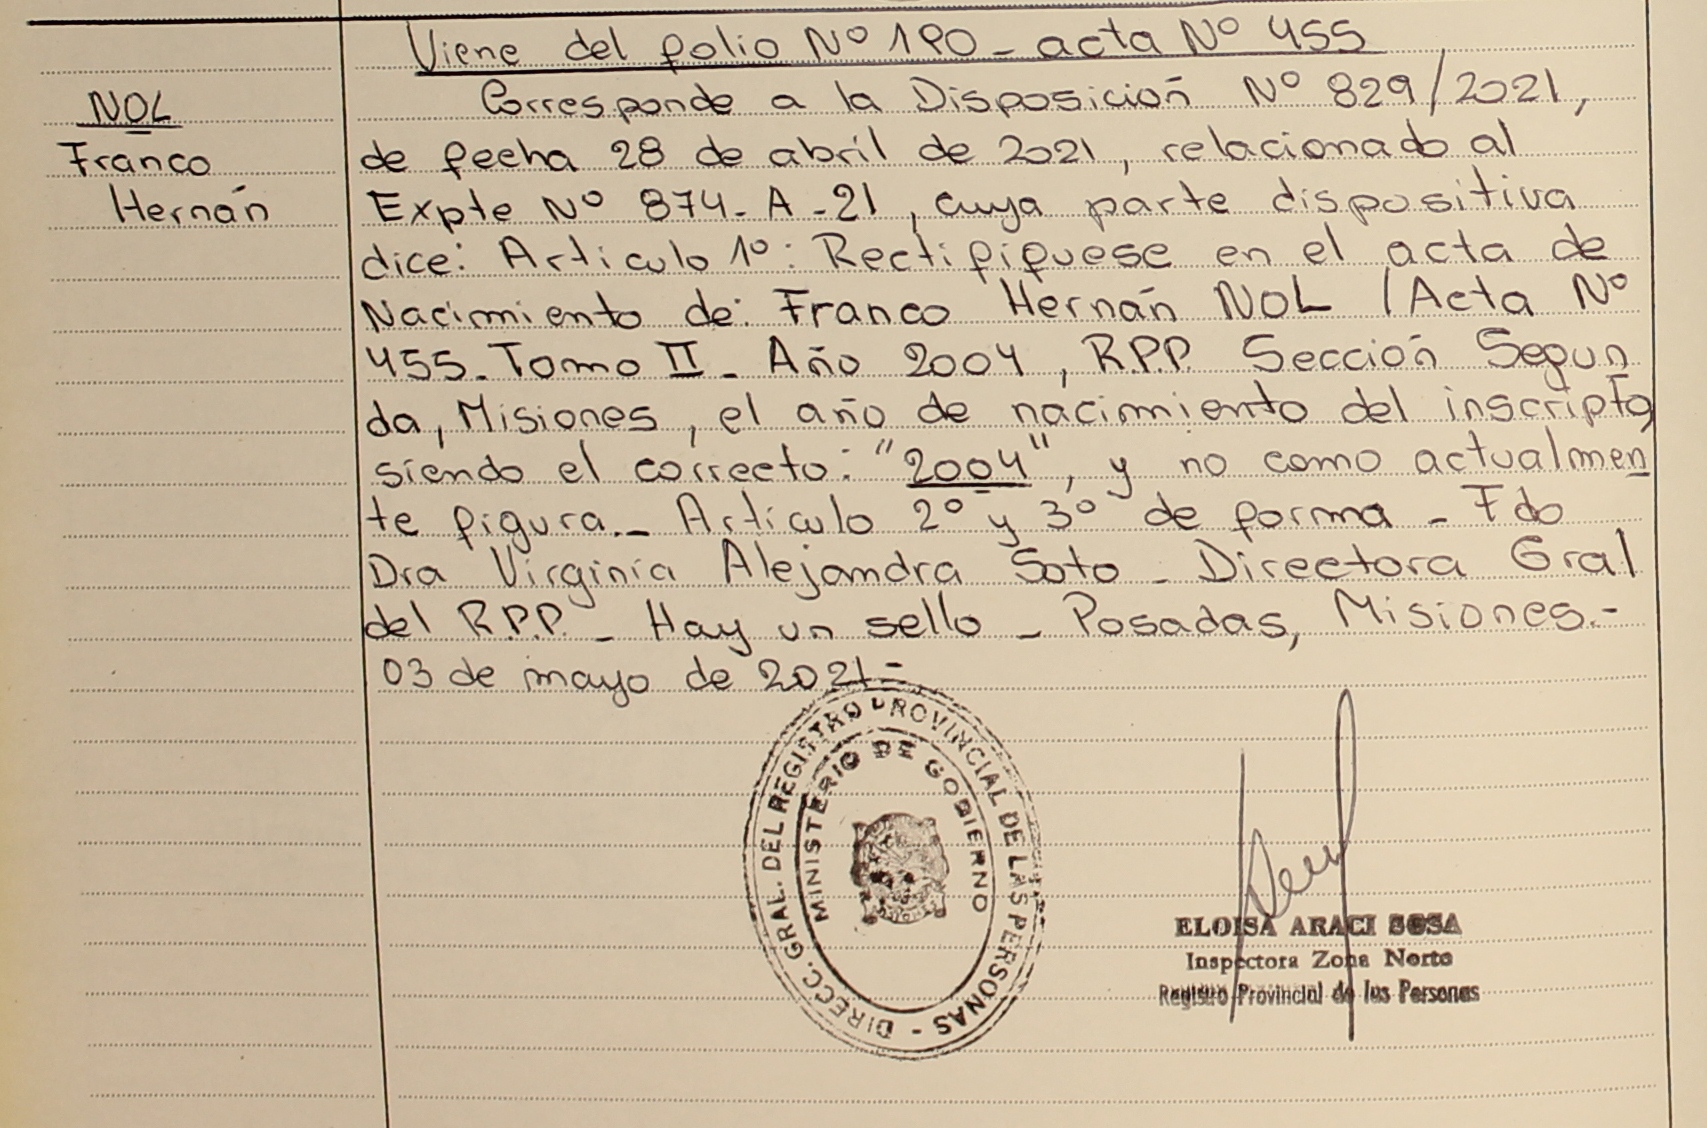 Viene del folio Nº 190 - acta Nº 455
NOL
Franco
Hernán
Corresponde a la Disposición Nº 829/2021,
de fecha 28 de abril de 2021, relacionado al
Expte Nº 874-A-21, cuya parte dispositiva
dice: Articulo 1º: Rectifífuese en el acta de
Nacimiento de: Franco Hernán NOL (Acta Nº
455-Tomo II - Año 2004, R.P.P. Sección Segun
da, Misiones, el año de nacimiento del inscripto,
siendo el correcto: "2004", y no como actualmen
te figura.- Artículo 2º y 3º de forma - Fdo
Dra Virginia Alejandra Soto - Directora Gral
del R.P.P. - Hay un sello - Posadas, Misiones.-
03 de mayo de 2021-
DIRECC. GRAL. DEL REGISTRO PROVINCIAL DE LAS PERSONAS -
MINISTERIO DE GOBIERNO
ELOISA ARACI SOSA
Inspectora Zona Norte
Registro Provincial de las Personas